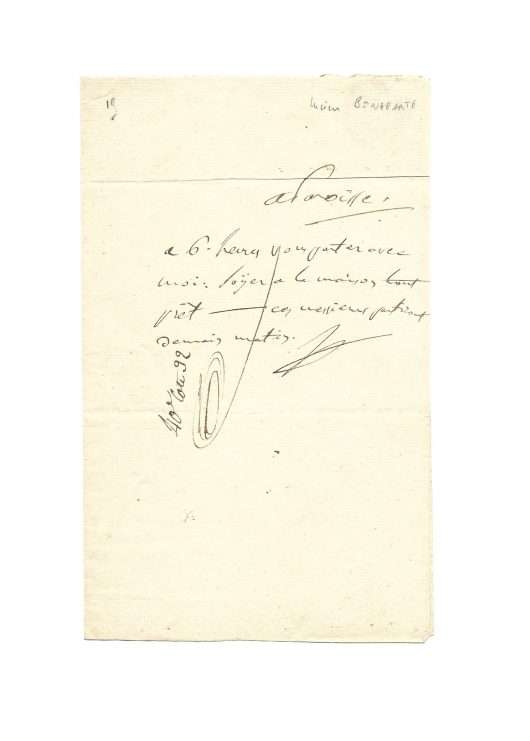 19
Lucien BONAPARTE
a Paroisse,
a 6. heures vous partez avec
moi: soÿez a la maison tout
prêt — ces messieurs partiront
demain matin.
92